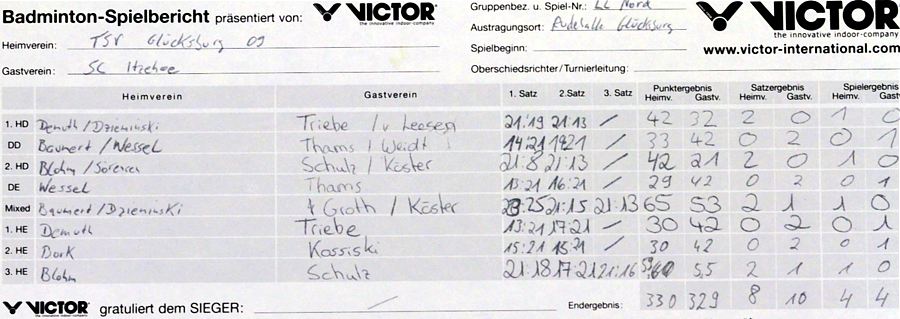 Badminton-Spielbericht präsentiert von: VICTOR the innovative indoor-company
Gruppenbez. u. Spiel-Nr.: LL Nord
VICTOR the innovative indoor-company
Heimverein: TSV Glücksburg 09
Austragungsort: Rudehalle Glücksburg
Spielbeginn: www.victor-international.com
Gastverein: SC Itzehoe
Oberschiedsrichter/Turnierleitung:
Heimverein Gastverein 1. Satz 2.Satz 3. Satz Punktergebnis Heimv. Gastv. Satzergebnis Heimv. Gastv. Spielergebnis Heimv. Gastv.
1. HD Demuth/Dzieminski Triebe / v Leesen 21:19 21:13 / 42 32 2 0 1 0
DD Baumert/Wessel Thams / Weidt 14:21 19:21 / 33 42 0 2 0 1
2. HD Blohm/Sörensen Schulz / Köster 21:8 21:13 / 42 21 2 0 1 0
DE Wessel Thams 13:21 16:21 / 29 42 0 2 0 1
Mixed Baumert/Dzieminski Groth / Köster 23:25 21:15 21:13 65 53 2 1 1 0
1. HE Demuth Triebe 13:21 17:21 / 30 42 0 2 0 1
2. HE Dork Kossiski 15:21 15:21 / 30 42 0 2 0 1
3. HE Blohm Schulz 21:18 17:21 21:16 59 55 2 1 1 0
VICTOR the innovative indoor-company gratuliert dem SIEGER: / Endergebnis: 330 329 8 10 4 4